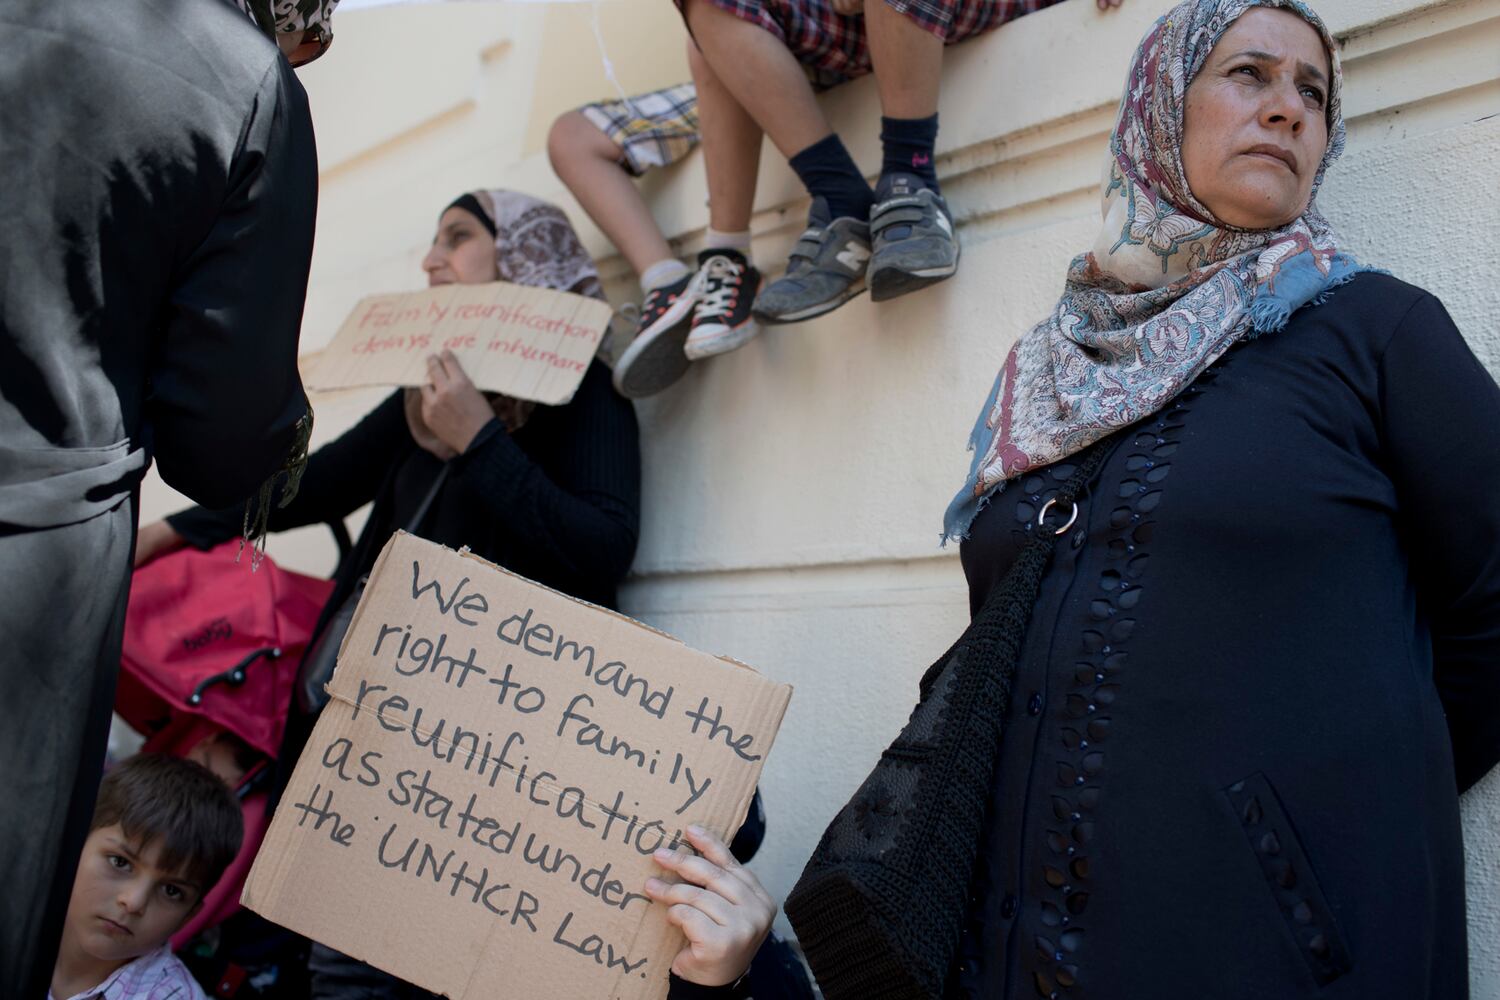 Family reunification
delays are inhumane
We demand the
right to family
reunification
as stated under
the UNHCR Law.
baby
N